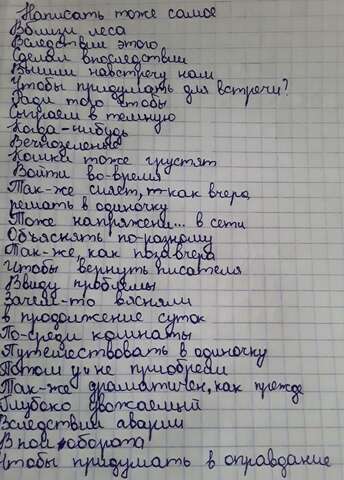 Написать тоже самое
Вблизи леса
Вследствии этого
Сделал впоследствии
Вышли навстречу нам
Чтобы придумать для встречи?
Ради того чтобы
Сыграем в темную
Когда-нибудь
Вечнозеленые
Кошки тоже грустят
Войти во-время
Так-же сияет, как вчера
решать в одиночку
Тоже напряжени... в сети
Объяснять по-разному
Так-же, как позавчера
Чтобы вернуть писателя
Ввиду проблемы
Зачем-то вясняли
в продолжение суток
По-среди комнаты
Путешествовать в одиночку
Потом не приобрел
Так-же драматичен, как прежде
Глубоко уважаемый
Вследствии аварии
В пол оборота
Чтобы придумать в оправдание